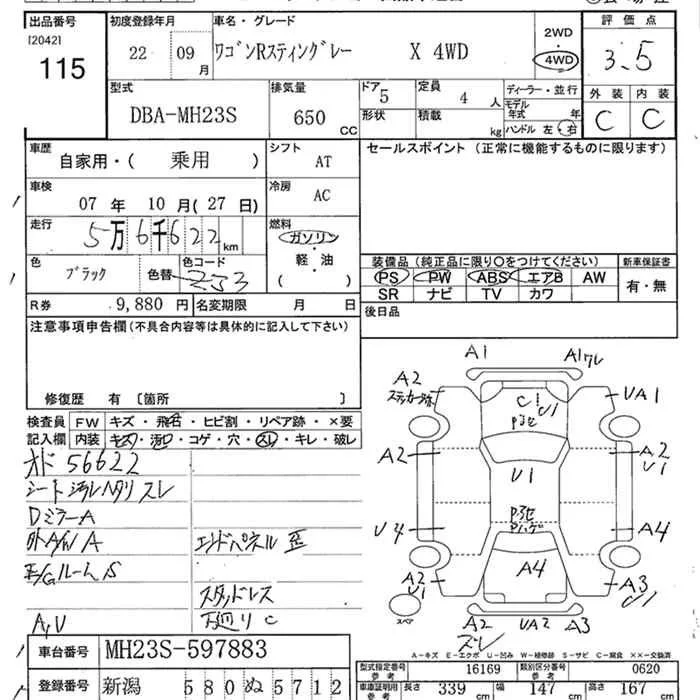 出品番号 初度登録年月 車名・グレード 評価点
[2042]
115
22 09 月 ワゴンRスティングレー X 4WD 2WD 4WD 3.5
型式 排気量 ドア 定員 ディーラー・並行 外装 内装
DBA-MH23S 650 CC 5 4 人 モデル年式 年 C C
形状 積載 kg ハンドル 左・右
車歴 シフト セールスポイント（正常に機能するものに限ります）
自家用・（ 乗用 ） AT
車検 冷房
07 年 10 月（ 27 日） AC
走行 燃料
5万6千622 km ガソリン・軽・油（ ）
色 色コード 装備品（純正品に限り○をつけてください） 新車保証書
ブラック 色替 PS PW ABS エアB AW 有・無
SR ナビ TV カワ
R券 9,880 円 名変期限 月 日 後日品
注意事項申告欄（不具合内容等は具体的に記入して下さい）
修復歴 有〔箇所 〕
検査員 FW キズ・飛石・ヒビ割・リペア跡・×要
記入欄 内装 キズ・汚レ・コゲ・穴・スレ・キレ・破レ
オド 56622
シート汚レ ヘタリ スレ
DミラーA
外A/W A エンドパネル歪
E/Gルーム S
スタッドレス
A,U 下廻りC
A1 A1ワレ
A2 UA1
ステッカー跡 C1 U1
A2 A2 U1
U1
U4 A4
A4
A2 U1 A3 C1
スペア A2 UA2 A3
ズレ
A－キズ E－エクボ U－凹み W－補修跡 S－サビ C－腐食 ××－交換済
車台番号 MH23S-597883
型式指定番号 参考 16169 類別区分番号 参考 0620
登録番号 新潟 580 ぬ 5712
車庫証明用 参考 長さ 339 cm 幅 147 cm 高さ 167 cm